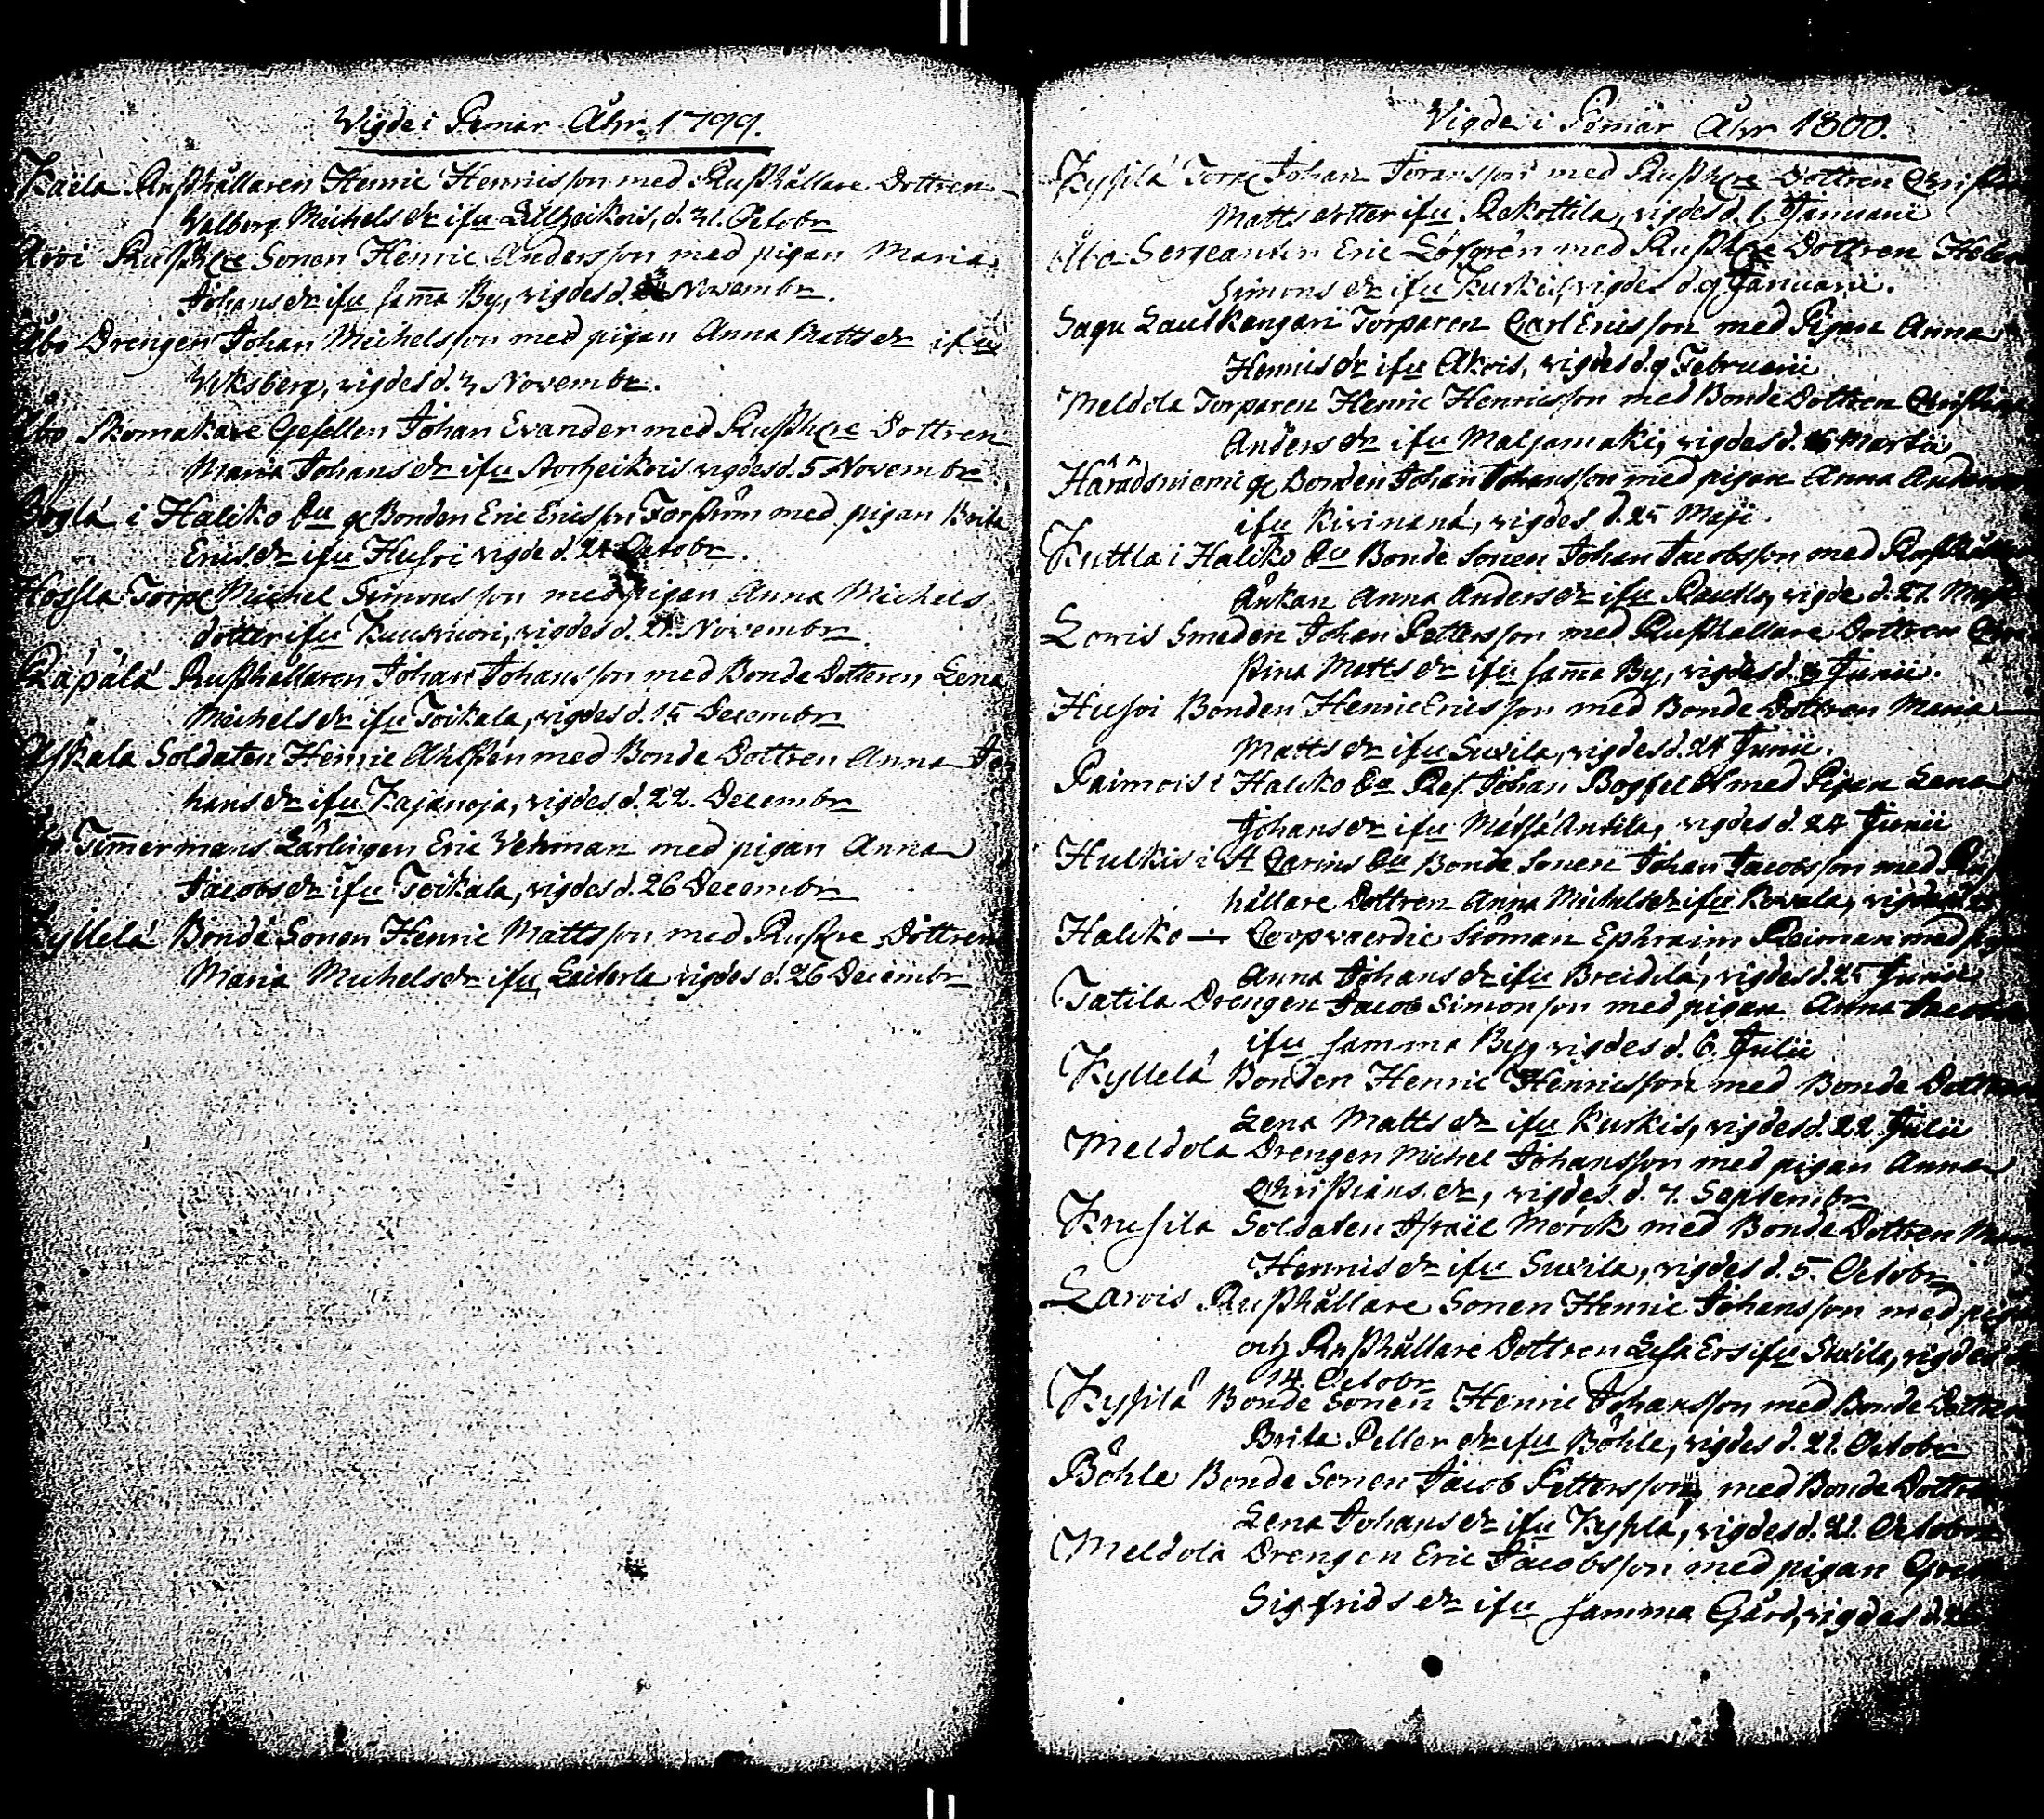 Vigde i Pemar Åhr 1799.
Kaila Rusthållaren Henric Henricsson med Rusthållare Dottren
Walborg Michels dr ifrn Lillheikois, d. 31. Octobr
Arvi Rusthre Sonen Henric Andersson med pigan Maria
Johans dr ifrn samma By, vigdes d. Novembr.
Åbo Drengen Johan Michelsson med pigan Anna Matts dr ifrn
Viksberg, vigdes d. 3 Novembr.
Åbo Skomakare Gesellen Johan Evander med Rusthre Dottren
Maria Johans dr ifrn Storheikois vigdes d. 5 Novembr
i Haliko Sn gl Bonden Eric Ericsson Forsström med pigan Brita
Erics dr ifrn Husoi vigde d. 24 Octobr.
Hossla Torpr Michel Simonsson med pigan Anna Michels
dotter ifrn Kuusvuori, vigdes d. 21. Novembr
Räpälä Rusthållaren Johan Johansson med Bonde Dotteren Lena
Michels dr ifrn Toikala, vigdes d. 15 Decembr
Askala Soldaten Henric Ahlsten med Bonde Dottren Anna Jo
hans dr ifrn Kajanoja, vigdes d. 22. Decembr
Timmermans Lärlingen Eric Vehman med pigan Anna
Jacobs dr ifrn Toikala, vigdes d. 26 Decembr
Kyllelä Bonde Sonen Henric Mattsson med Rusthre Dottren
Maria Michels dr ifrn vigdes d. 26 Decembr
Vigde i Pemar Åhr 1800.
Kysilä Torpr Johan Joransson med Rusthre Dottren Christin
Matts dotter ifrn Rekottila, vigdes d. 1. Januarii
Åbo Sergeanten Eric Löfgrén med Rusthre Dottren Helen
Simons dr ifrn Kurkis, vigdes d. 9 Januarii.
Sagu Lautkangari Torparen Carl Ericsson med Pigan Anna
Henrics dr ifrn Akois, vigdes d. 9 Februarii
Meldola Torparen Henric Henricsson med Bonde Dottren Christin
Anders dr ifrn Maljamaki, vigdes d. 16 Martii
Häradsniemi gl Bonden Johan Johansson med pigan Anna
ifrn Kivinenä, vigdes d. 25 Maji.
Kuttla i Haliko Sn Bonde Sonen Johan Jacobsson med
Änkan Anna Anders dr ifrn vigde d. 27. Maji
Lowis Smeden Johan Pettersson med Rusthållare Dottren
stina Matts dr ifrn samma By, vigdes d. Junii.
Husoi Bonden Henric Ericsson med Bonde Dottren Maria
Matts dr ifrn Suvila, vigdes d. 24 Junii.
Raimois i Haliko Sn Johan med Pigan Lena
Johans dr ifrn Antika, vigdes d. 24 Junii
Hulkis i St Carins Sn Bonde Sonen Johan Jacobsson med Rust
hållare Dottren Anna Michels dr ifrn Kovala, vigdes d.
Haliko — Coopvaerdie Siöman Ephraim Reiman med
Anna Johans dr ifrn Breidilä, vigdes d. 25 Junii
Tatila Drengen Jacob Simonsson med pigan Anna Jacobs
ifrn samma By, vigdes d. 6. Julii
Kyllelä Bonden Henric Henricsson med Bonde Dottren
Lena Matts dr ifrn Kurkis, vigdes d. 22 Julii
Meldola Drengen Michel Johansson med pigan Anna
Christians dr, vigdes d. 7. Septembr
Krusila Soldaten Israel Mörck med Bonde Dottren
Henrics dr ifrn Suvila, vigdes d. 5. Octobr
Larvis Rusthållare Sonen Henric Johansson med
och Rusthållare Dottren Lisa Ers ifrn Suvila, vigdes d.
14. Octobr
Kysilä Bonde Sonen Henric Johansson med Bonde Dottren
Brita Petter dr ifrn Böhle, vigdes d. 21. Octobr
Böhle Bonde Sonen Jacob Pettersson med Bonde Dottren
Lena Johans dr ifrn Kysilä, vigdes d. 21. Octobr
Meldola Drengen Eric Jacobsson med pigan
Sigfrids dr ifrn samma Gård, vigdes d.